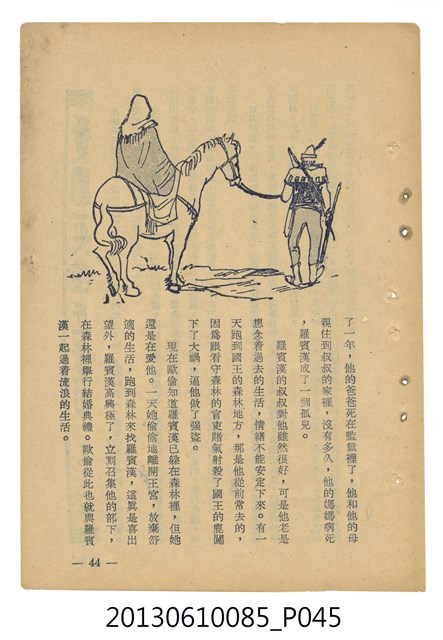 了一年，他的爸爸死在監獄裡了，他和他的母
親住到叔叔的家裡，沒有多久，他的媽媽病死
，羅賓漢成了一個孤兒。
羅賓漢的叔叔對他雖然很好，可是他老是
想念着過去的生活，情緒不能安定下來。有一
天跑到國王的森林地方，那是他從前常去的，
因爲跟看守森林的官吏賭氣射殺了國王的鹿闖
下了大禍，逼他做了强盜。
現在歐倫知道羅賓漢已躱在森林裡，但她
還是在愛他。一天她偷偷地離開王宮，放棄舒
適的生活，跑到森林來找羅賓漢，這眞是喜出
望外，羅賓漢高興極了，立刻召集他的部下，
在森林裡舉行結婚典禮。歐倫從此也就與羅賓
漢一起過着流浪的生活。
— 44 —
20130610085_P045